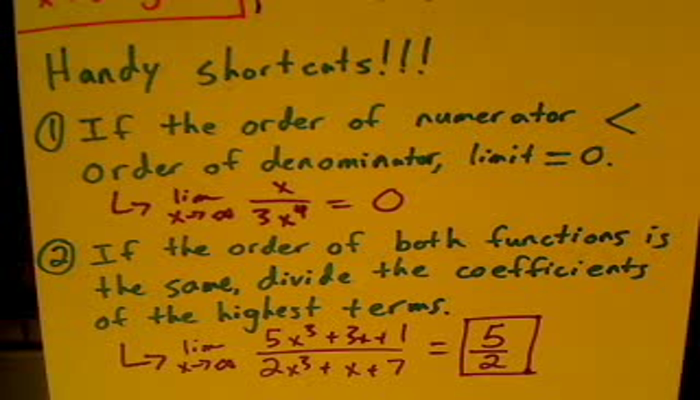 Handy shortcuts!!!
① If the order of numerator <
order of denominator, limit = 0.
↳ lim x→∞ x/3x⁴ = 0
② If the order of both functions is
the same, divide the coefficients
of the highest terms.
↳ lim x→∞ 5x³+3x+1/2x³+x+7 = 5/2